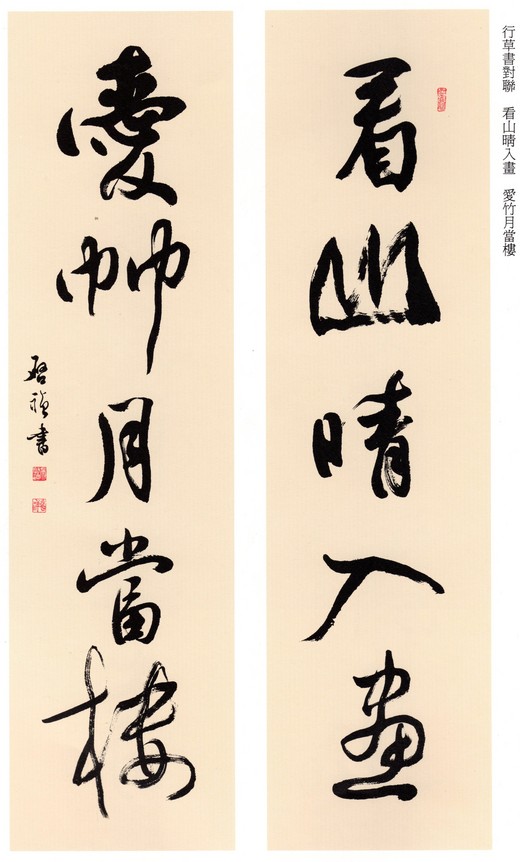 行草書對聯　看山晴入畫　愛竹月當樓
看山晴入畫
愛竹月當樓
啟禎書